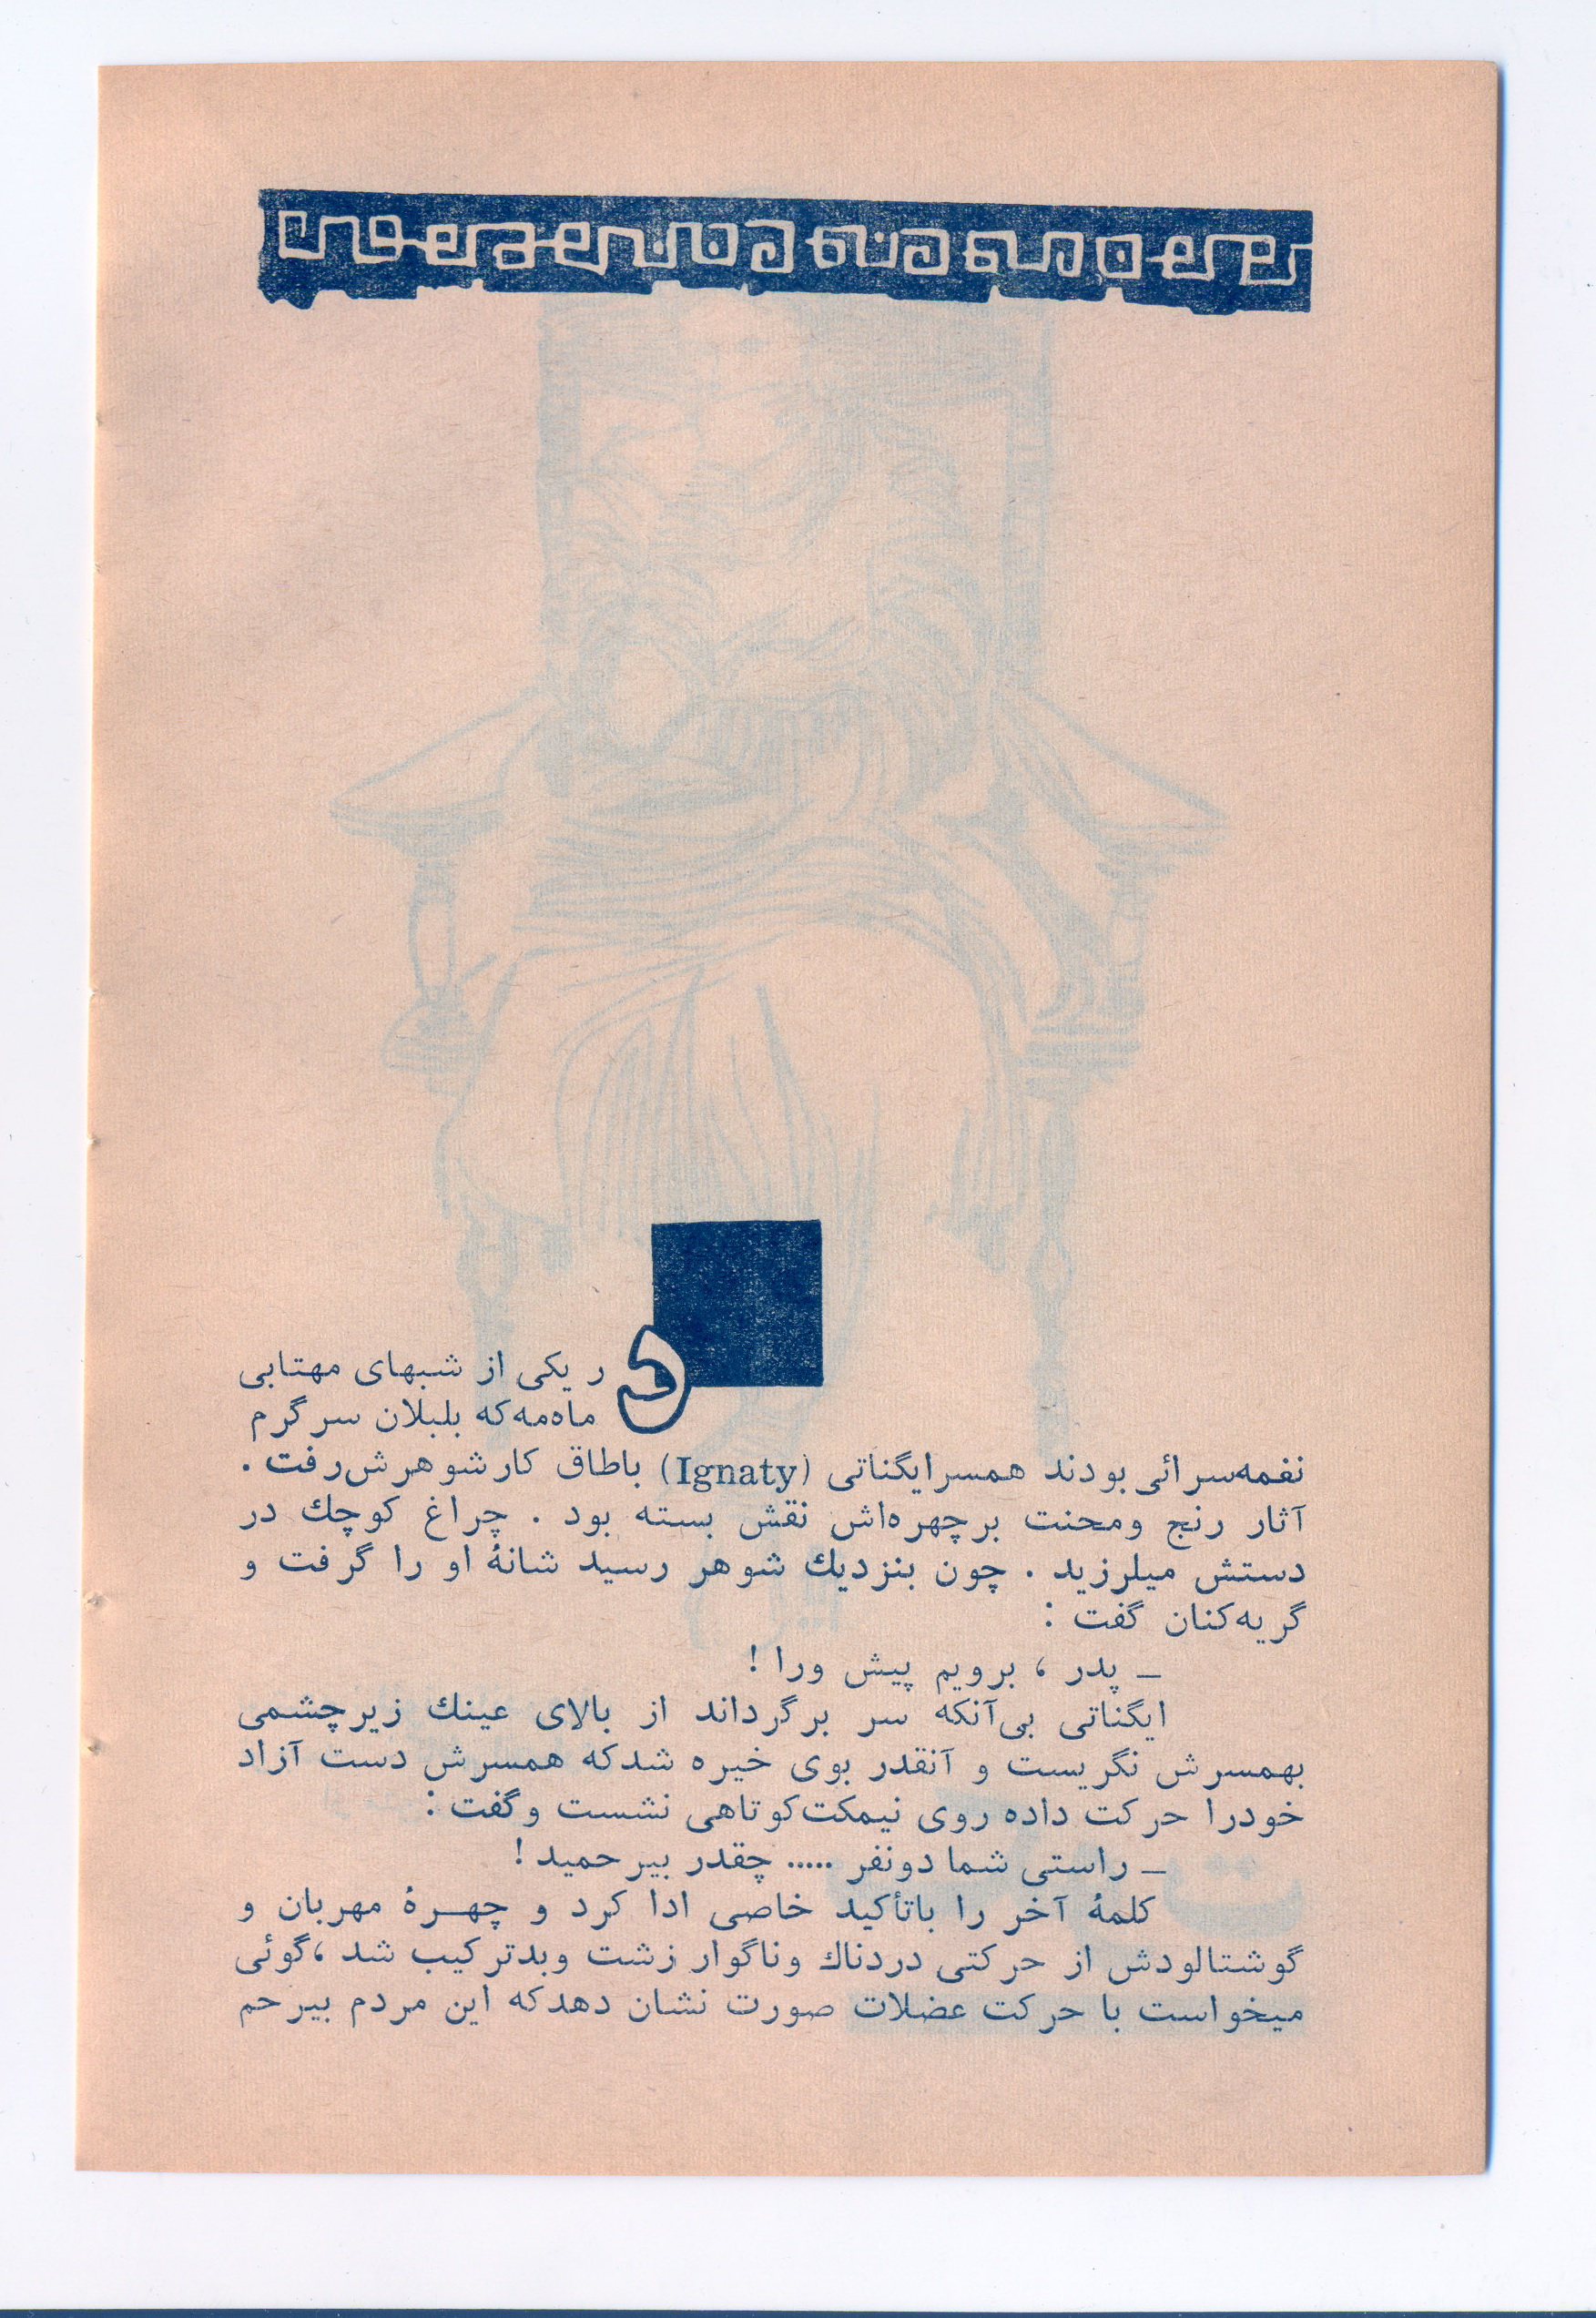 در یکی از شبهای مهتابی
ماه‌مه‌که بلبلان سرگرم
نغمه‌سرائی بودند همسرایگناتی (Ignaty) باطاق کارشوهرش‌رفت .
آثار رنج ومحنت برچهره‌اش نقش بسته بود . چراغ کوچك در
دستش میلرزید . چون بنزدیك شوهر رسید شانهٔ او را گرفت و
گریه‌کنان گفت :
ـ پدر ، برویم پیش ورا !
ایگناتی بی‌آنکه سر برگرداند از بالای عینك زیرچشمی
بهمسرش نگریست و آنقدر بوی خیره شدکه همسرش دست آزاد
خودرا حرکت داده روی نیمکت‌کوتاهی نشست وگفت :
ـ راستی شما دونفر ..... چقدر بیرحمید !
کلمهٔ آخر را باتأکید خاصی ادا کرد و چهـرهٔ مهربان و
گوشتالودش از حرکتی دردناك وناگوار زشت وبدترکیب شد ،گوئی
میخواست با حرکت عضلات صورت نشان دهدکه این مردم بیرحم